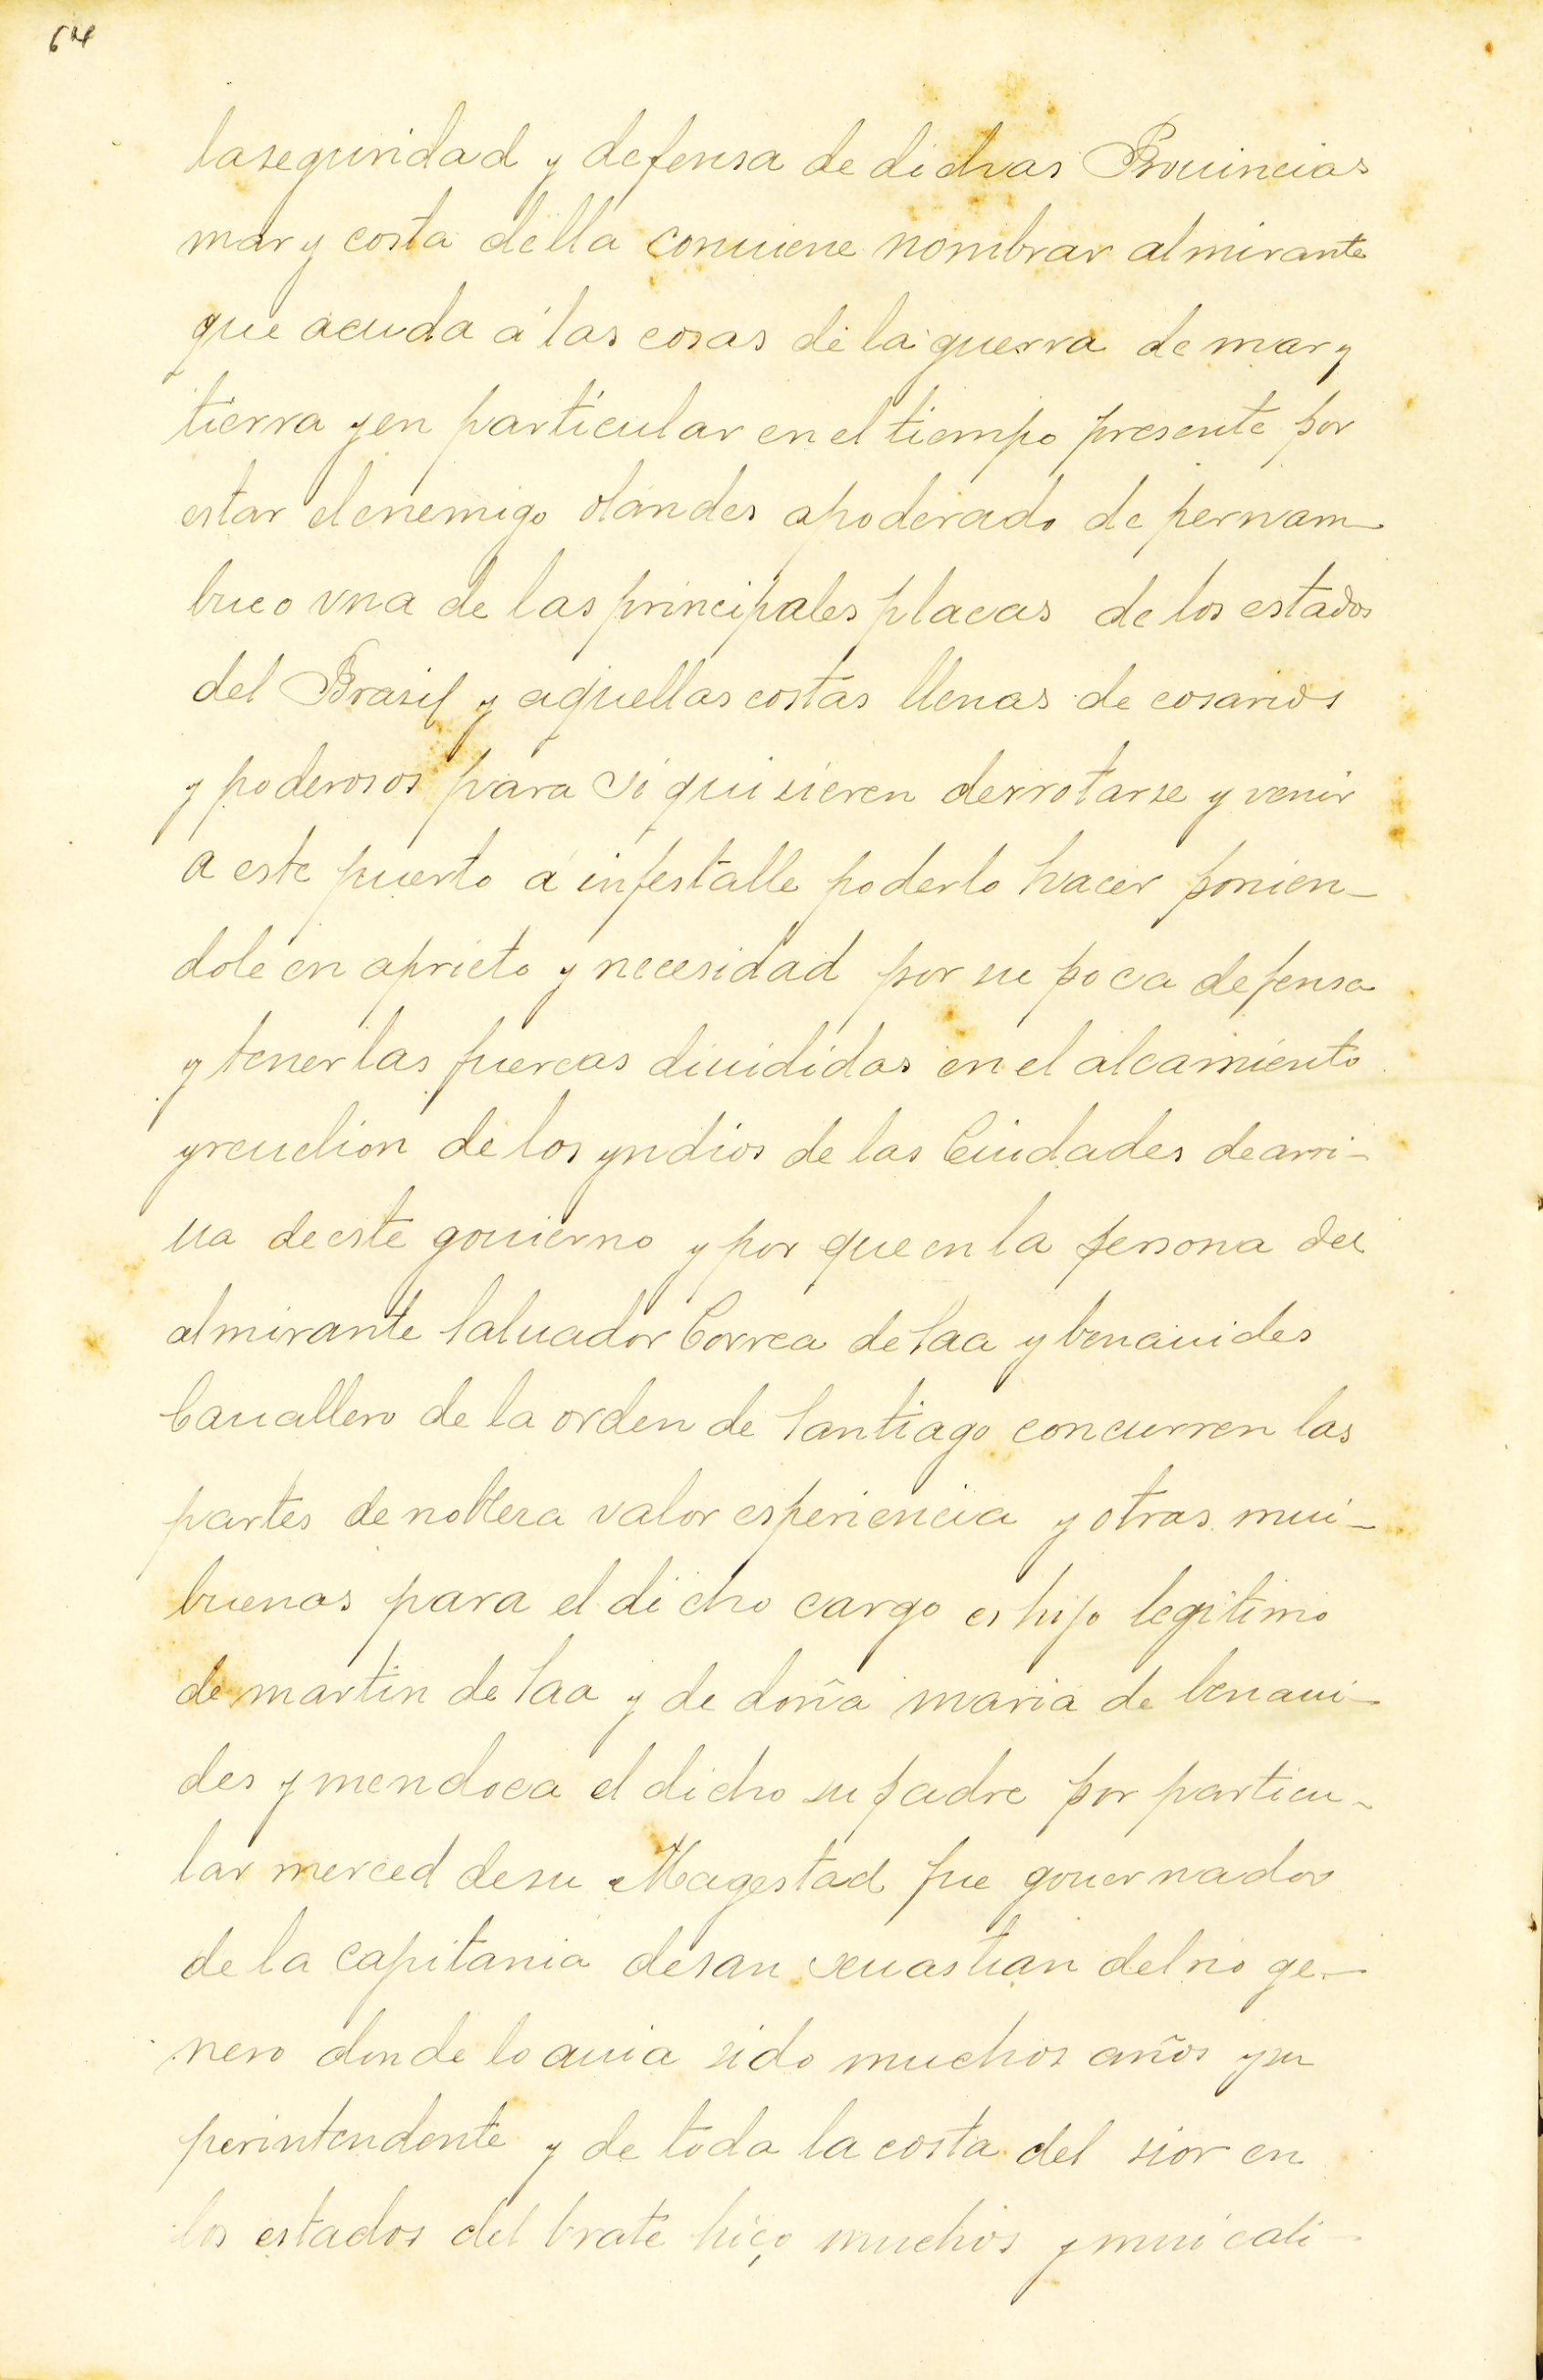 64
la seguridad y defensa de dichas Prouincias
mar y costa della conuiene nombrar almirante
que acuda á las cosas de la guerra de mar y
tierra y en particular en el tiempo presente por
estar el enemigo olandes apoderado de pernam-
buco vna de las principales placas de los estados
del Brasil y aquellas costas llenas de cosarios
y poderosos para si quisieren derrotarse y venir
a este puerto á infestalle poderlo hacer ponien-
dole en aprieto y necesidad por su poca defensa
y tener las fuercas diuididas en el alcamiento
y reuelion de los yndios de las Ciudades de arri-
ua de este gouierno y por que en la persona del
almirante Saluador Correa de Saa y benauides
Cauallero de la orden de Santiago concurren las
partes de nobleza valor esperiencia y otras mui-
buenas para el dicho cargo es hijo legitimo
de martin de Saa y de doña maria de benaui-
des y mendoca el dicho su padre por particu-
lar merced de su Magestad fue gouernador
de la capitania de san seuastian del rio ge-
nero donde lo auia sido muchos años y su
perintendente y de toda la costa del sior en
los estados del brate hiço muchos y mui cali-